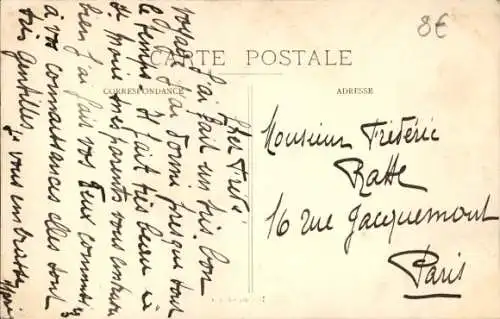 8€
CARTE POSTALE
CORRESPONDANCE
ADRESSE
Cher Frédé
J'ai fait un très bon
voyage j'ai dormi presque tout
le temps. Il fait très beau ici
et mes parents vous
bien j'ai fais vos deux
à vos connaissances elles sont
très gentilles je vous embrasse
Monsieur Frédéric
Ratte
16 rue Jacquemont
Paris